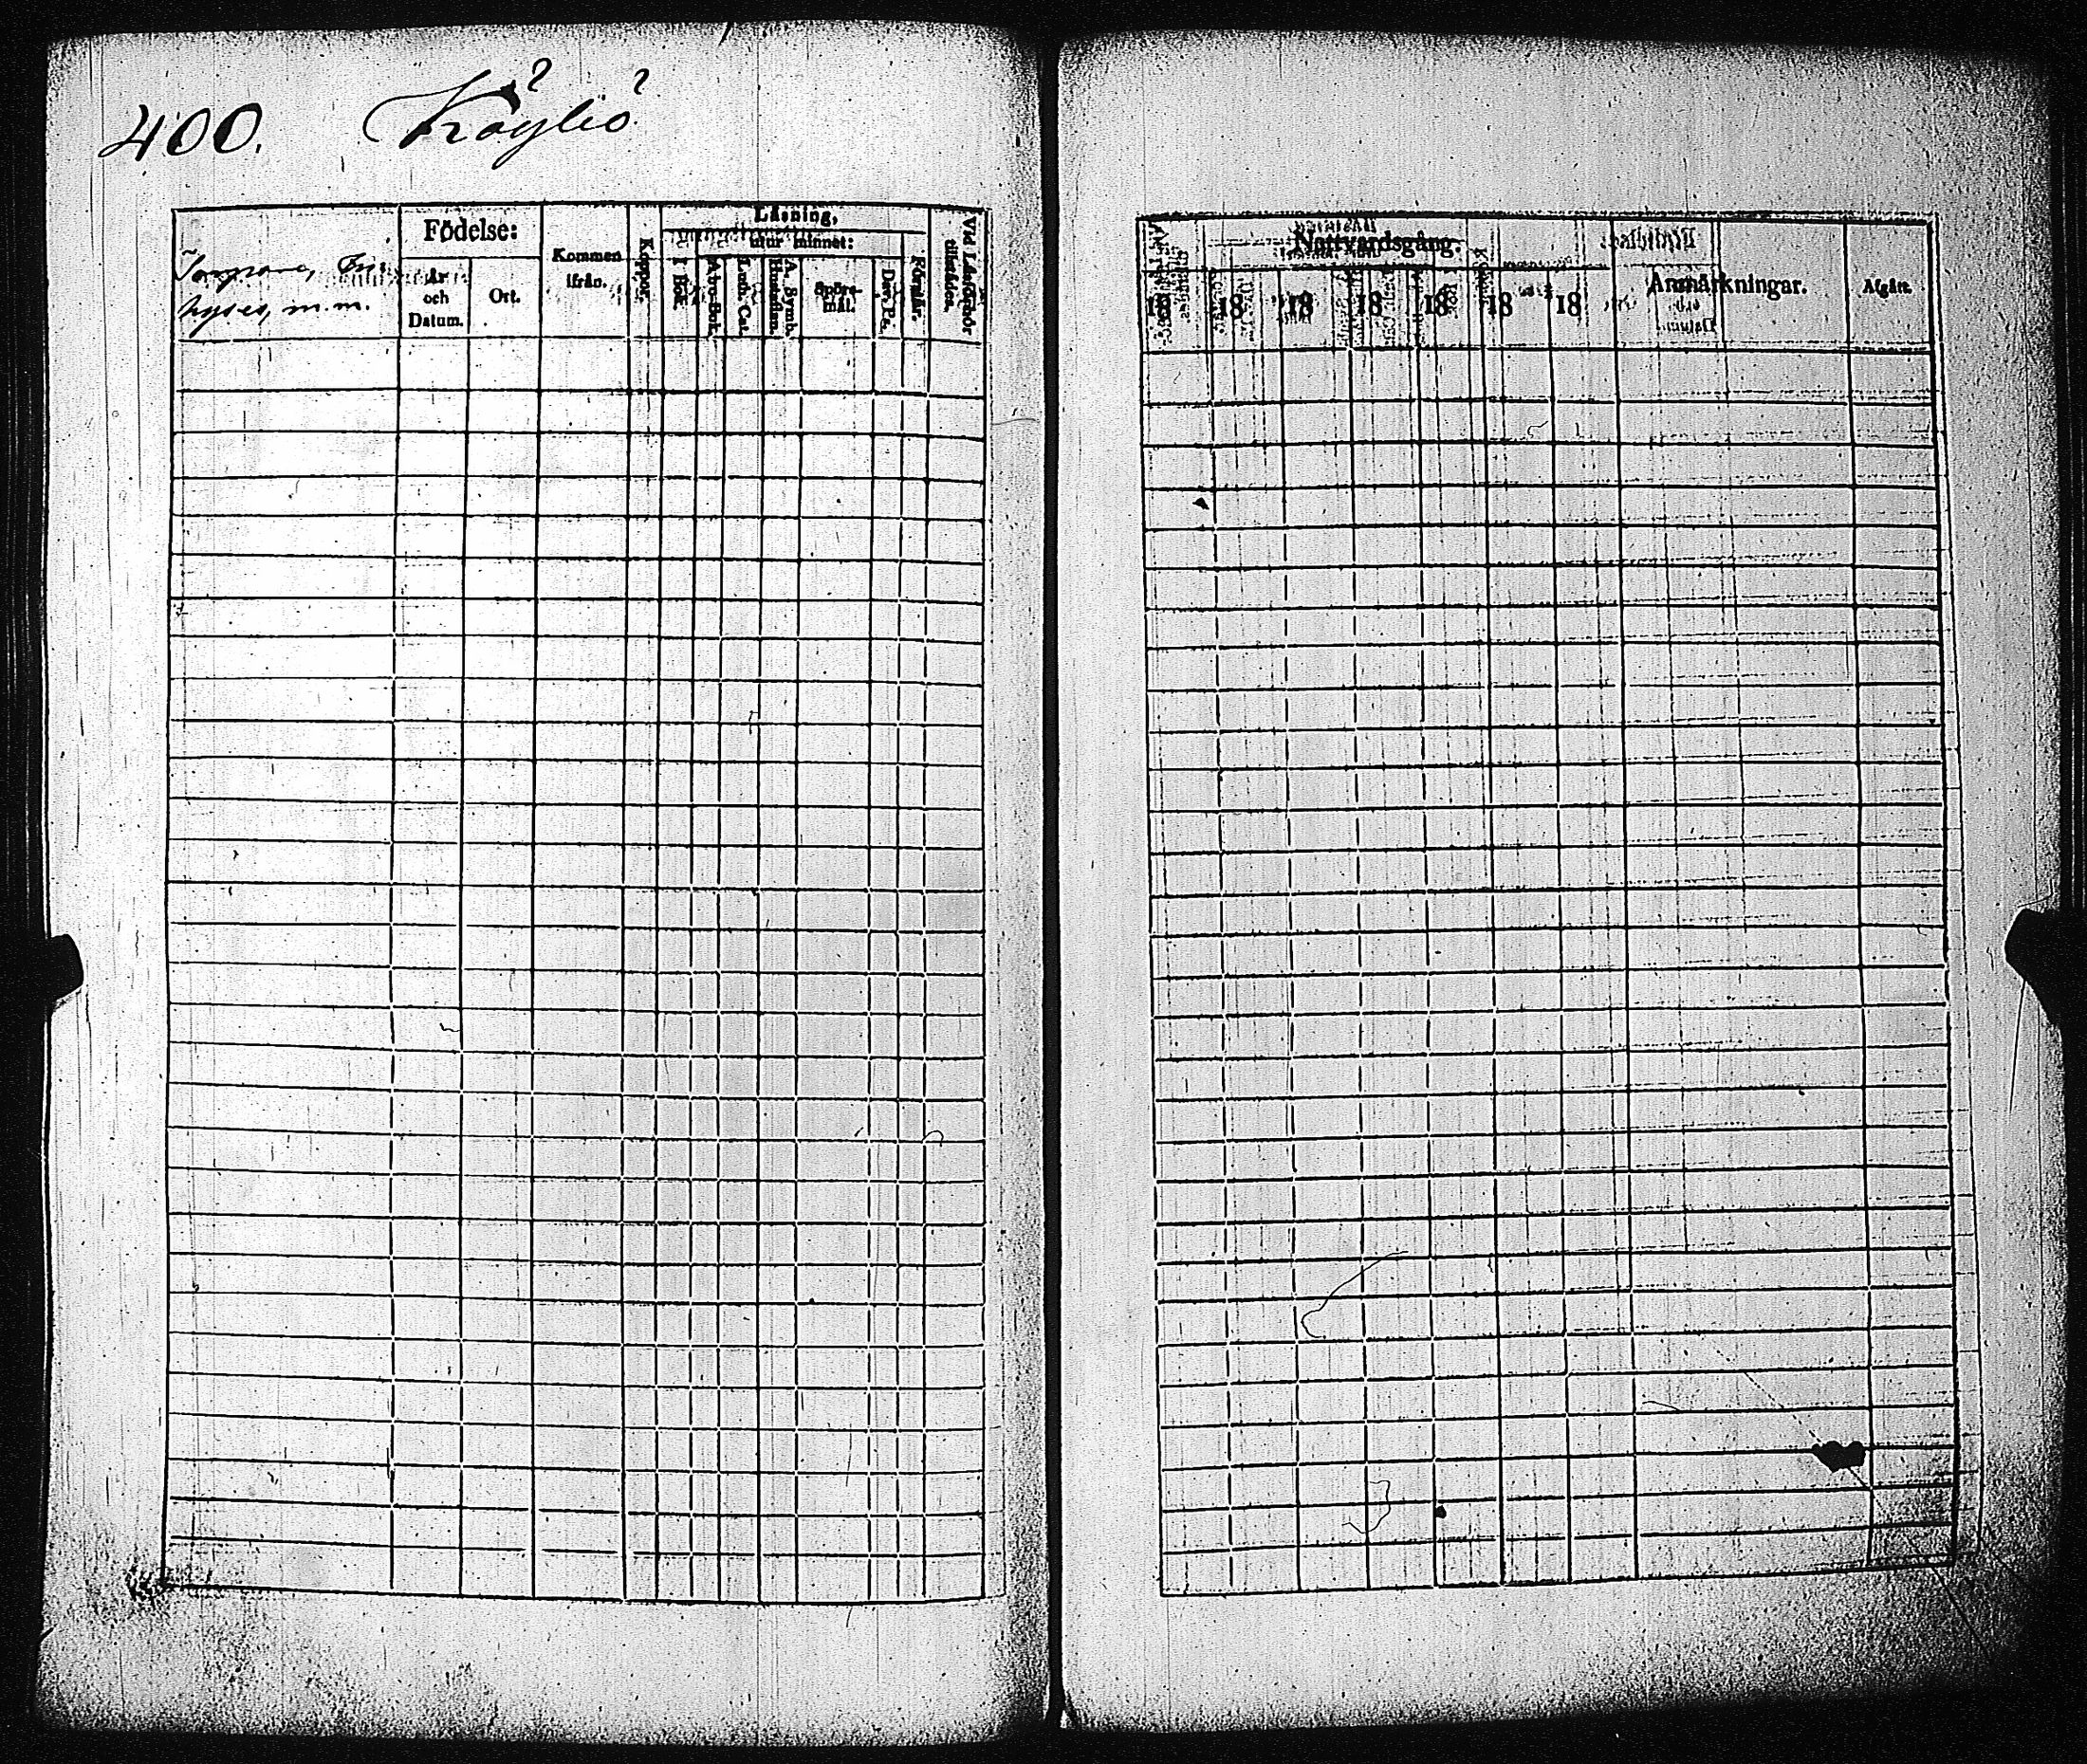 400. Köyliö
Torpare, In-
hyses, m.m.
Födelse:
År
och
Datum.
Ort.
Kommen
ifrån.
Koppor.
Läsning,
I Bok.
utur minnet:
Abc-Bok.
Luth. Cat.
A. Symb.
Hustaflan.
Spörs-
mål.
Dav. Ps.
Förstår.
Vid Läseförhör
tillstädes.
Nattvardsgång.
18 18 18 18 18 18 18
Anmärkningar.
Afgått.